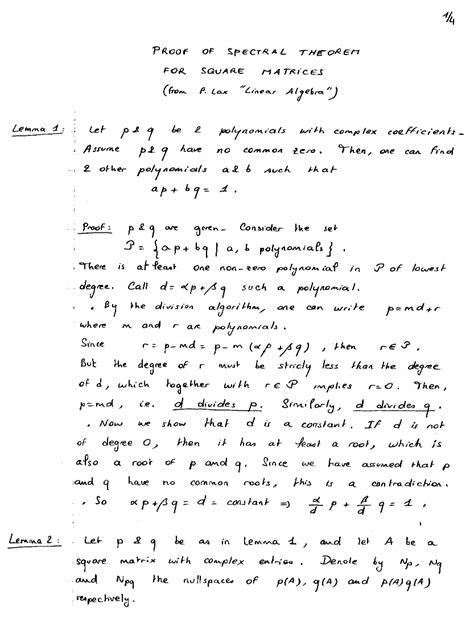 1/4
PROOF OF SPECTRAL THEOREM
FOR SQUARE MATRICES
(from P. Lax "Linear Algebra")
Lemma 1: Let p & q be 2 polynomials with complex coefficients.
Assume p & q have no common zero. Then, one can find
2 other polynomials a & b such that
ap + bq = 1.
Proof: p & q are given. Consider the set
P = { ap + bq | a, b polynomials }.
. There is at least one non-zero polynomial in P of lowest
degree. Call d = αp + βq such a polynomial.
. By the division algorithm, one can write p = md + r
where m and r are polynomials.
Since r = p - md = p - m (αp + βq), then r ∈ P.
But the degree of r must be stricly less than the degree
of d, which together with r ∈ P implies r = 0. Then,
p = md, i.e. d divides p. Similarly, d divides q.
. Now we show that d is a constant. If d is not
of degree 0, then it has at least a root, which is
also a root of p and q. Since we have assumed that p
and q have no common roots, this is a contradiction.
. So αp + βq = d = constant ⇒ α/d p + β/d q = 1.
Lemma 2: Let p & q be as in Lemma 1, and let A be a
square matrix with complex entries. Denote by Np, Nq
and Npq the nullspaces of p(A), q(A) and p(A)q(A)
respectively.